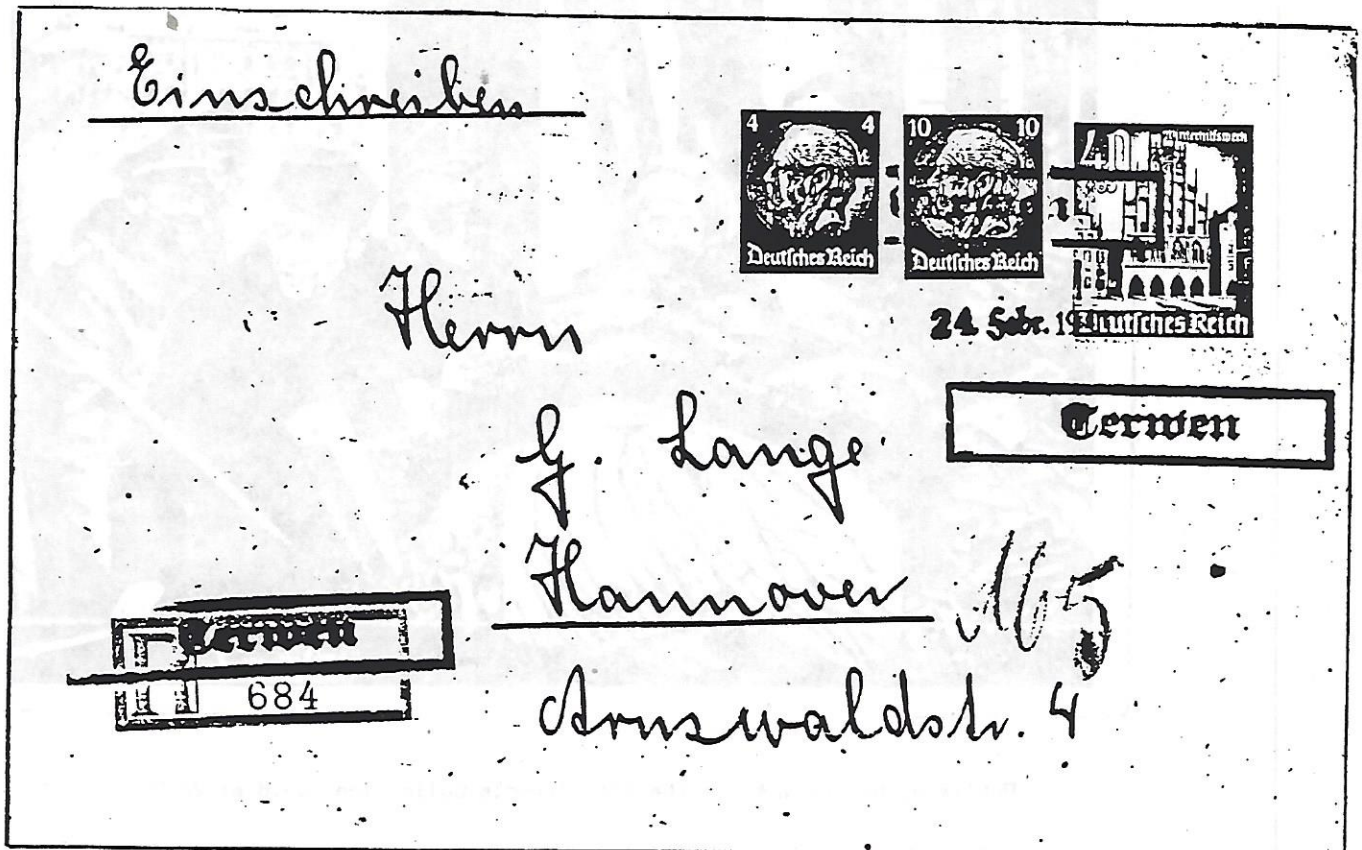 Einschreiben
4 4
Deutsches Reich
10 10
Deutsches Reich
40 Winterhilfswerk
Deutsches Reich
24. Febr. 19
Terwen
Herrn
G. Lange
Hannover
Arnswaldstr. 4
Terwen
R
684